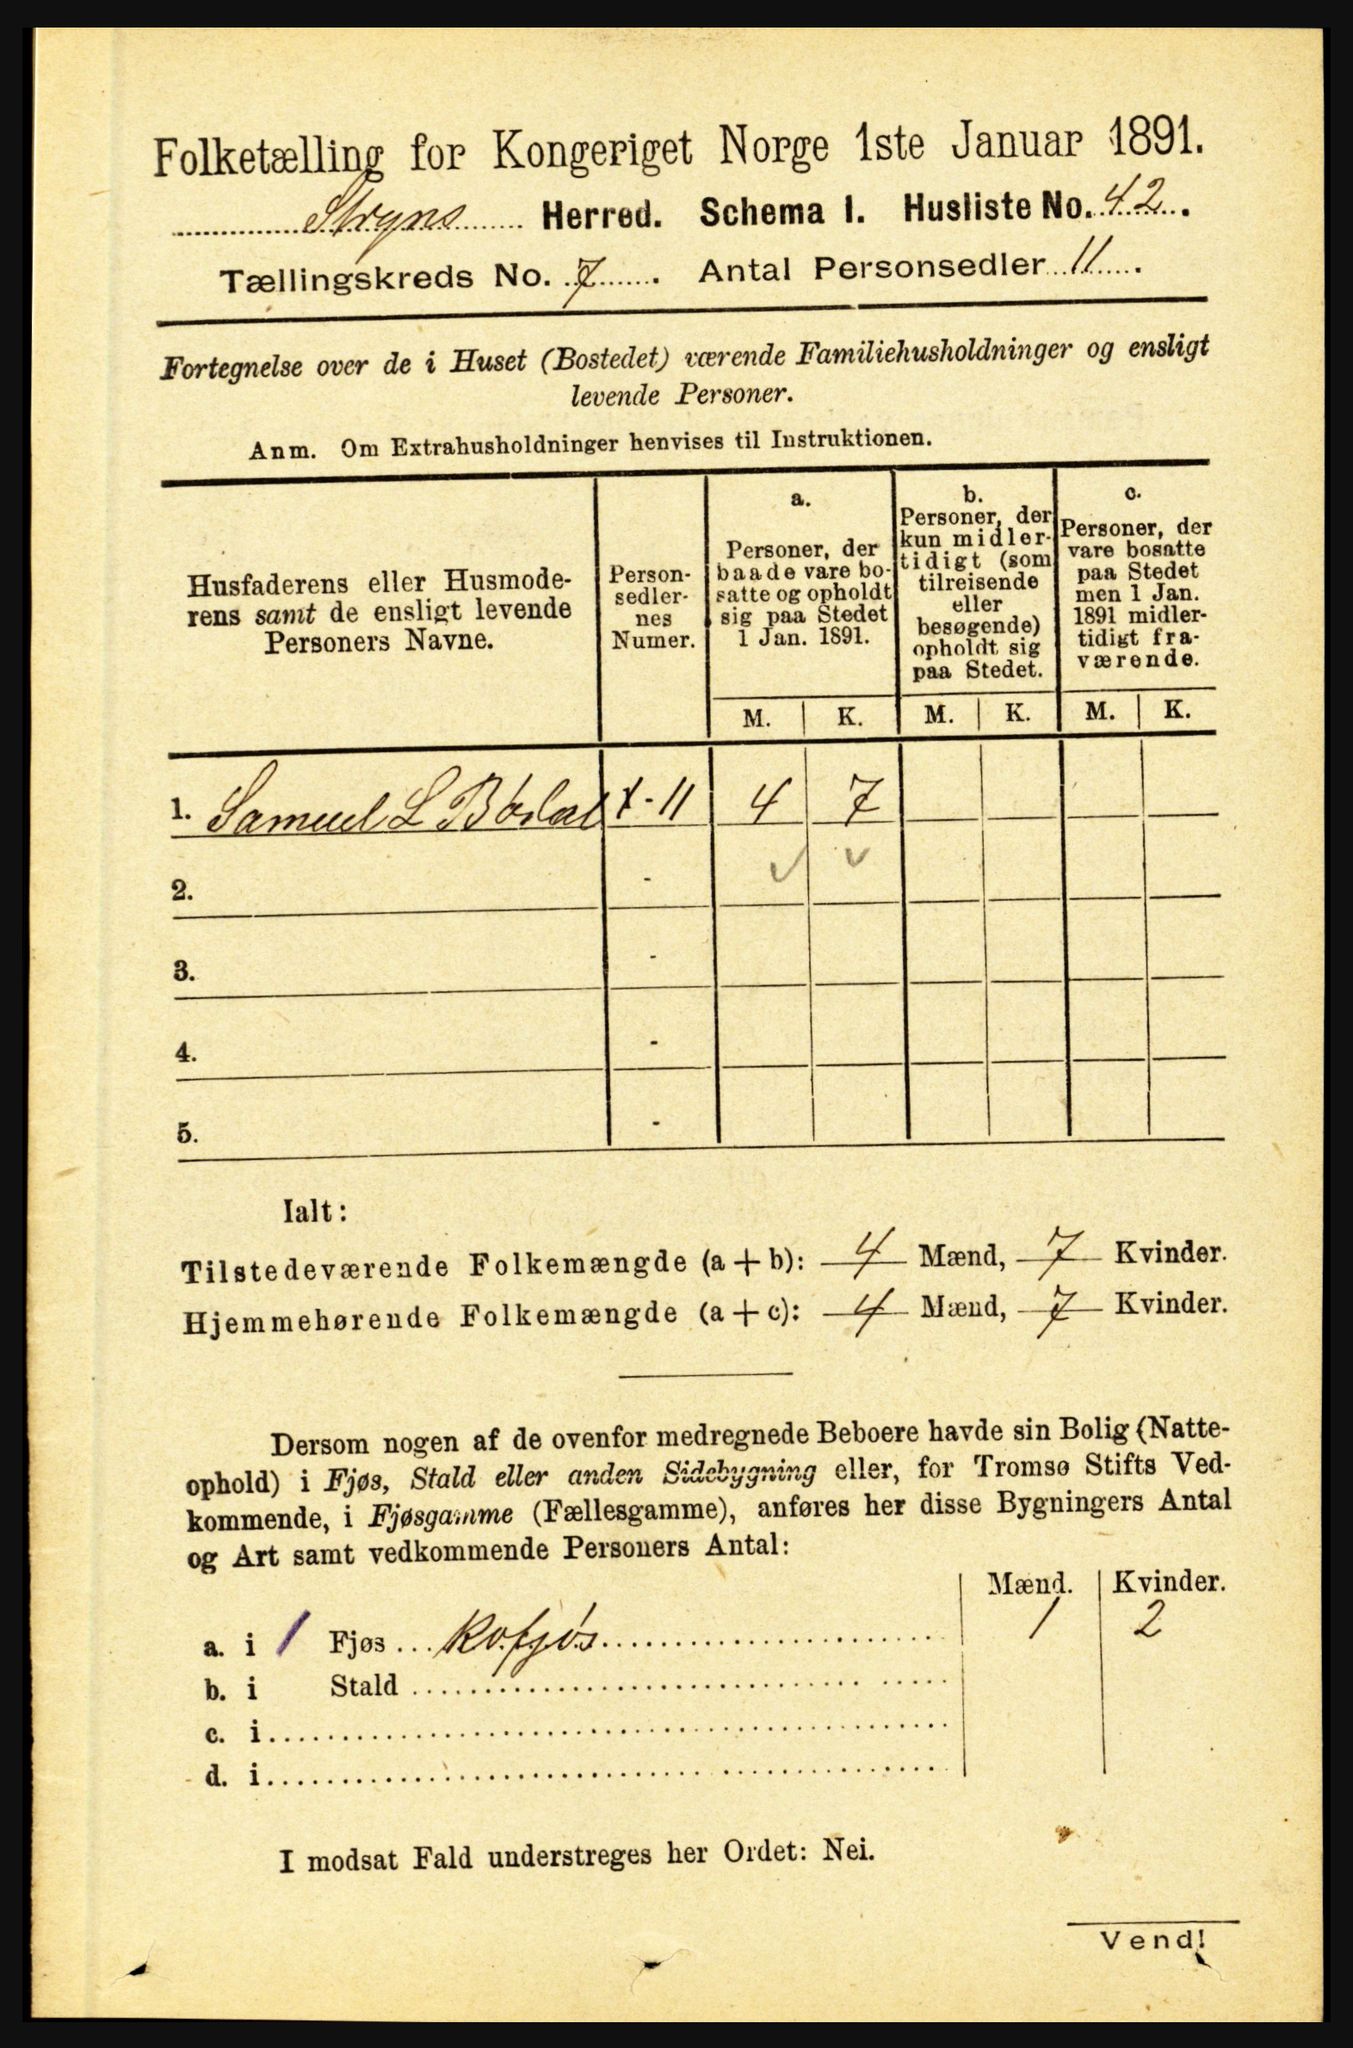 Folketælling for Kongeriget Norge 1ste Januar 1891.
Stryns Herred. Schema I. Husliste No. 42.
Tællingskreds No. 7. Antal Personsedler 11.
Fortegnelse over de i Huset (Bostedet) værende Familiehusholdninger og ensligt
levende Personer.
Anm. Om Extrahusholdninger henvises til Instruktionen.
Husfaderens eller Husmode-
rens samt de ensligt levende
Personers Navne.
Person-
sedler-
nes
Numer.
a.
Personer, der
baade vare bo-
satte og opholdt
sig paa Stedet
1 Jan. 1891.
b.
Personer, der
kun midler-
tidigt (som
tilreisende
eller
besøgende)
opholdt sig
paa Stedet.
c.
Personer, der
vare bosatte
paa Stedet
men 1 Jan.
1891 midler-
tidigt fra-
værende.
M. K. M. K. M. K.
1. Samuel L - 11 4 7
2. -
3. -
4. -
5. -
Ialt:
Tilstedeværende Folkemængde (a + b): 4 Mænd, 7 Kvinder.
Hjemmehørende Folkemængde (a + c): 4 Mænd, 7 Kvinder.
Dersom nogen af de ovenfor medregnede Beboere havde sin Bolig (Natte-
ophold) i Fjøs, Stald eller anden Sidebygning eller, for Tromsø Stifts Ved-
kommende, i Fjøsgamme (Fællesgamme), anføres her disse Bygningers Antal
og Art samt vedkommende Personers Antal:
Mænd. Kvinder.
a. i 1 Fjøs Kofjøs 1 2
b. i Stald
c. i
d. i
I modsat Fald understreges her Ordet: Nei.
Vend!